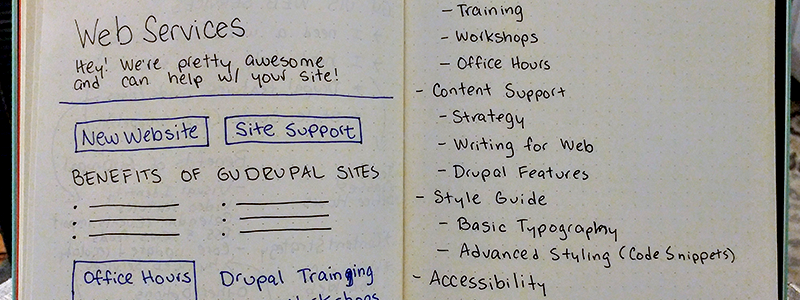 Web Services
Hey! We're pretty awesome
and can help w/ your site!
New Website
Site Support
BENEFITS OF GUDRUPAL SITES
Office Hours
Drupal Training
Workshops
- Training
- Workshops
- Office Hours
- Content Support
- Strategy
- Writing for Web
- Drupal Features
- Style Guide
- Basic Typography
- Advanced Styling (Code Snippets)
- Accessibility